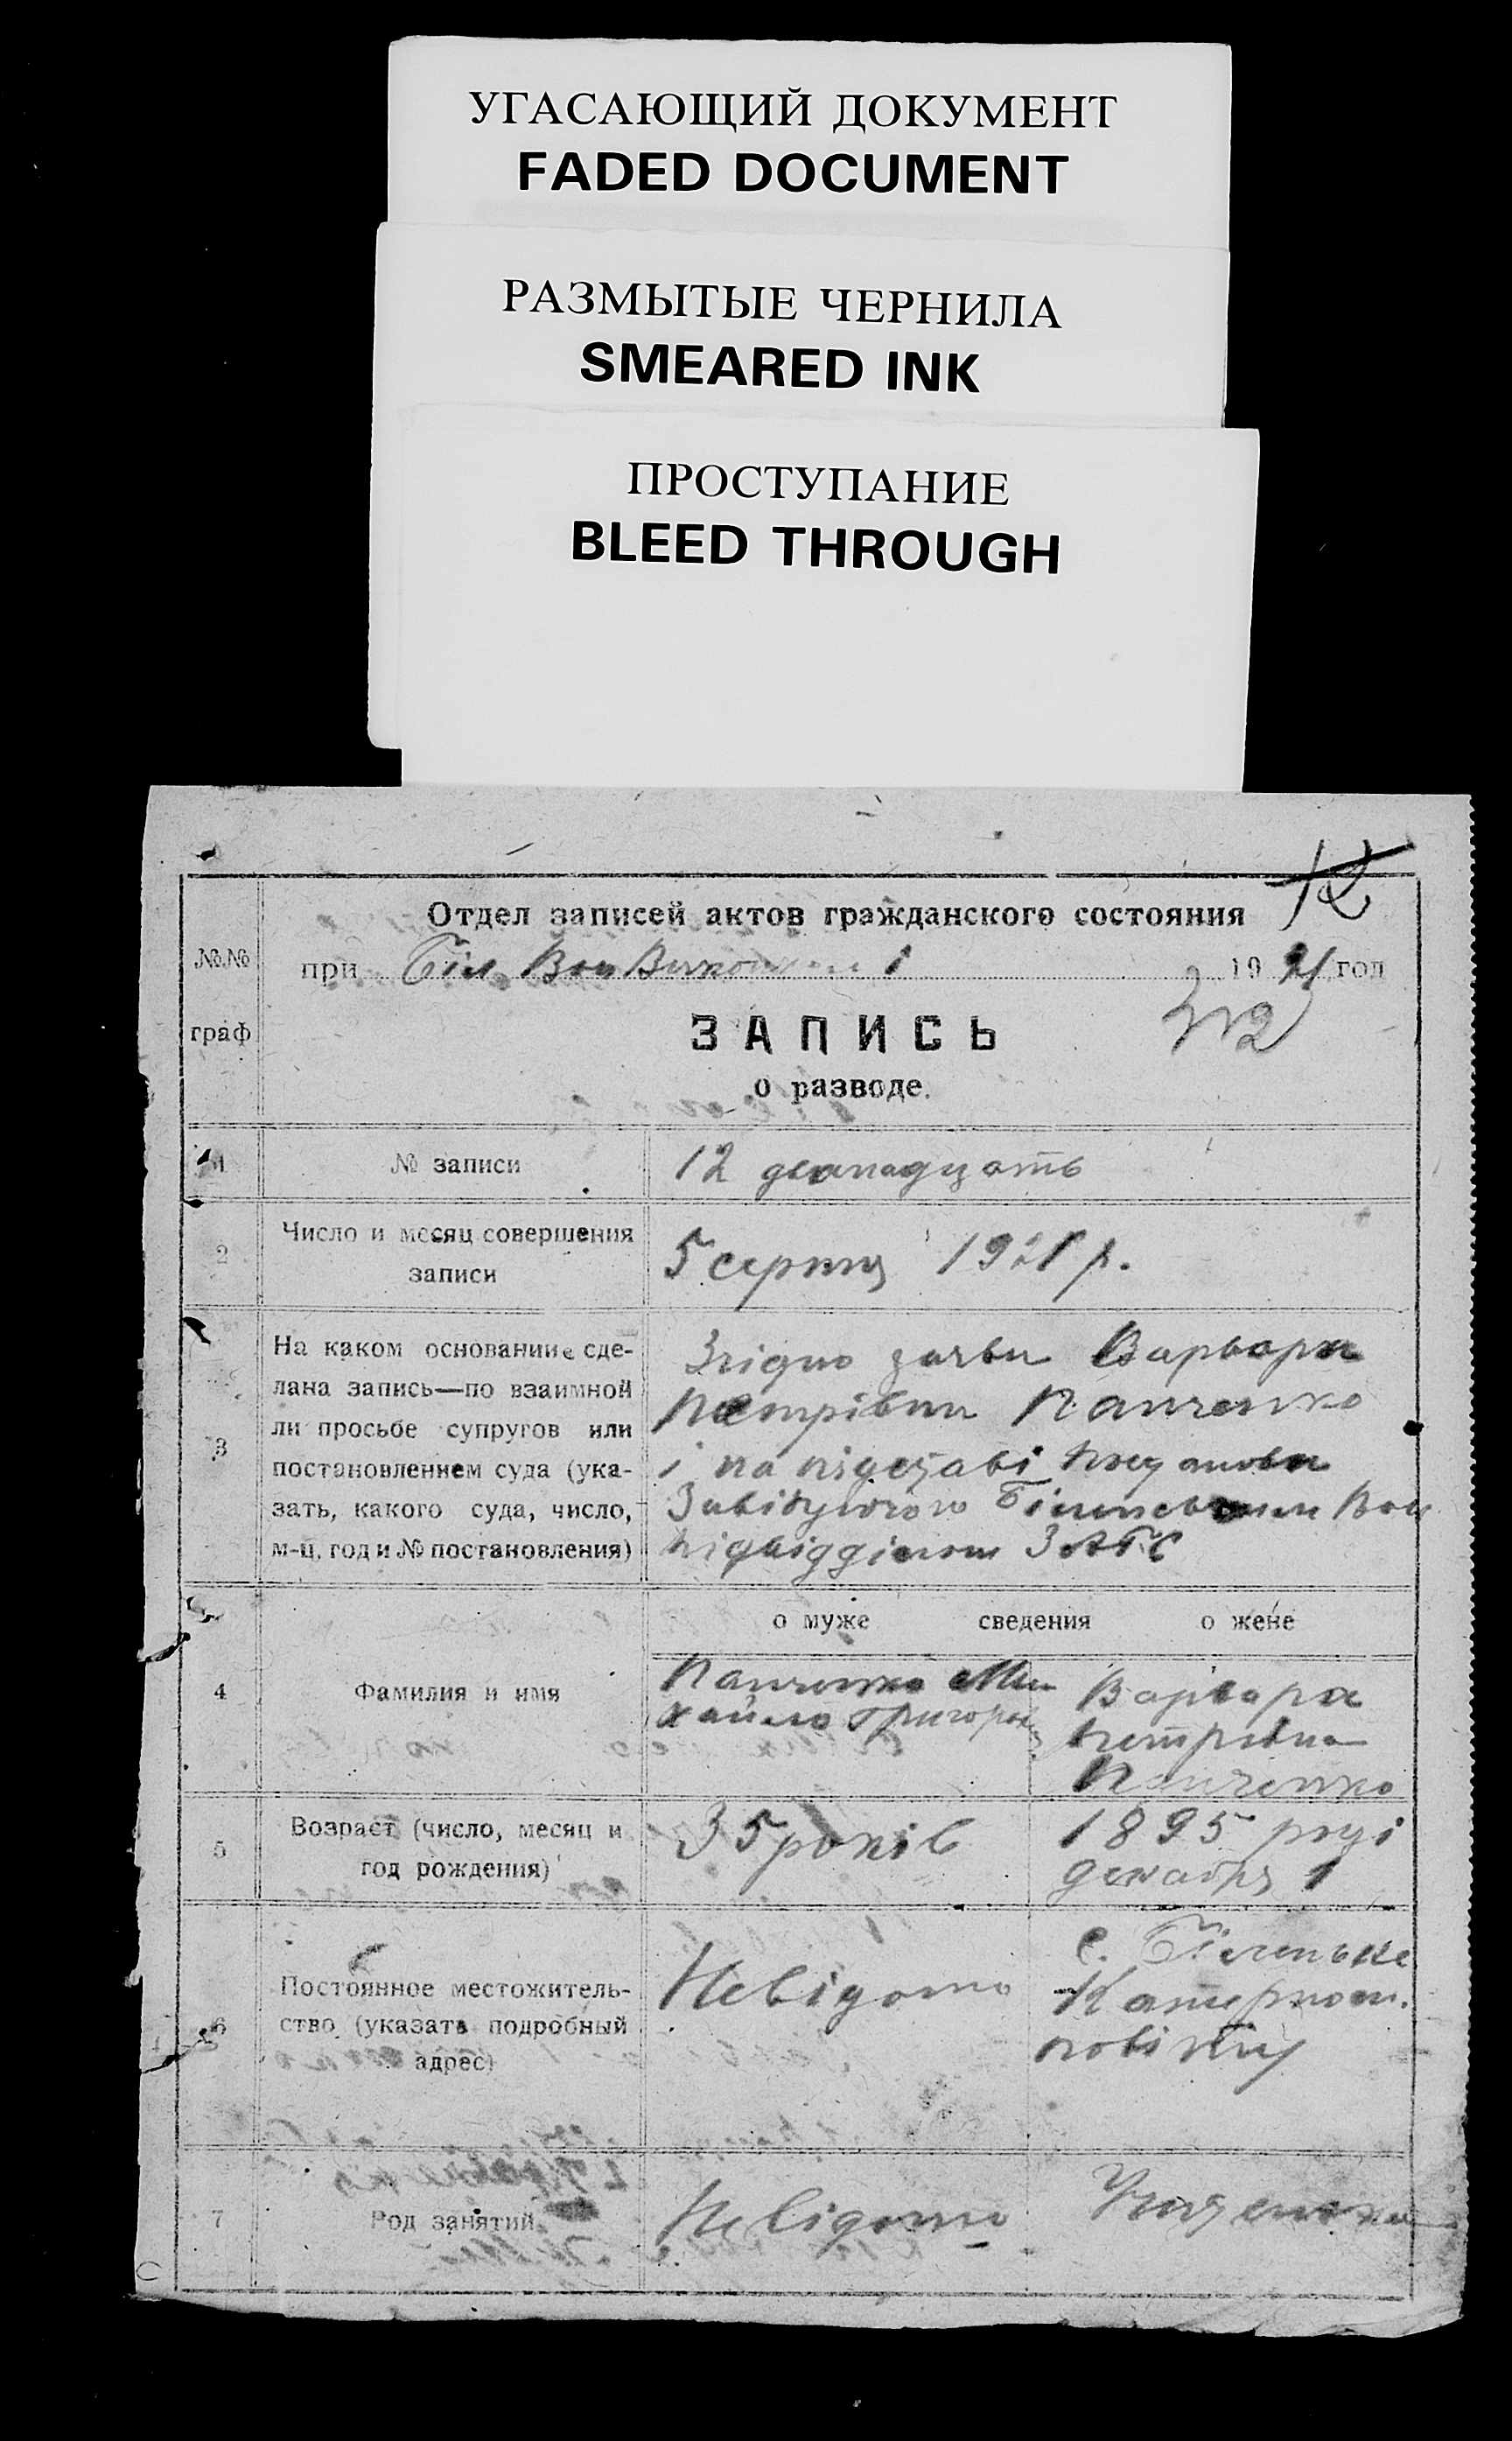 УГАСАЮЩИЙ ДОКУМЕНТ
FADED DOCUMENT
РАЗМЫТЫЕ ЧЕРНИЛА
SMEARED INK
ПРОСТУПАНИЕ
BLEED THROUGH
12
Отдел записей актов гражданского состояния
№№
граф
при Біл Вол 1921 год
ЗАПИСЬ
о разводе.
1 № записи 12 дванадцять
2 Число и месяц совершения
записи
5 серпня 1921 р.
3 На каком основании сде-
лана запись—по взаимной
ли просьбе супругов или
постановлением суда (ука-
зать, какого суда, число,
м-ц, год и № постановления)
Згідно заяви Варвари
Петрівни Панченко
і на підставі постанови
Завідуючого Вол
підвідділом ЗАГС
о муже сведения о жене
4 Фамилия и имя
Панченко Ми-
хайло Григоров
Варвара
Петрівна
Панченко
5 Возраст (число, месяц и
год рождения)
35 років
1895 році
декабря 1
6 Постоянное местожитель-
ство (указать подробный
адрес)
Невідомо
с. Біленьке
Катериносл.
повіту
7 Род занятий
Невідомо